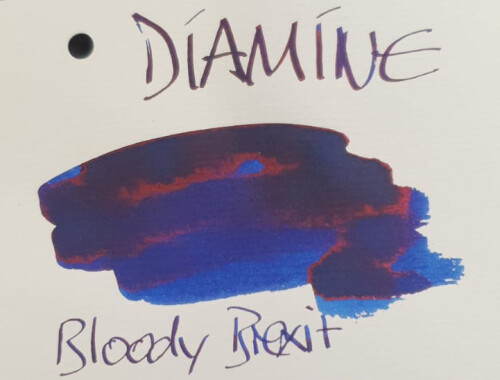 DIAMINE
Bloody Brexit